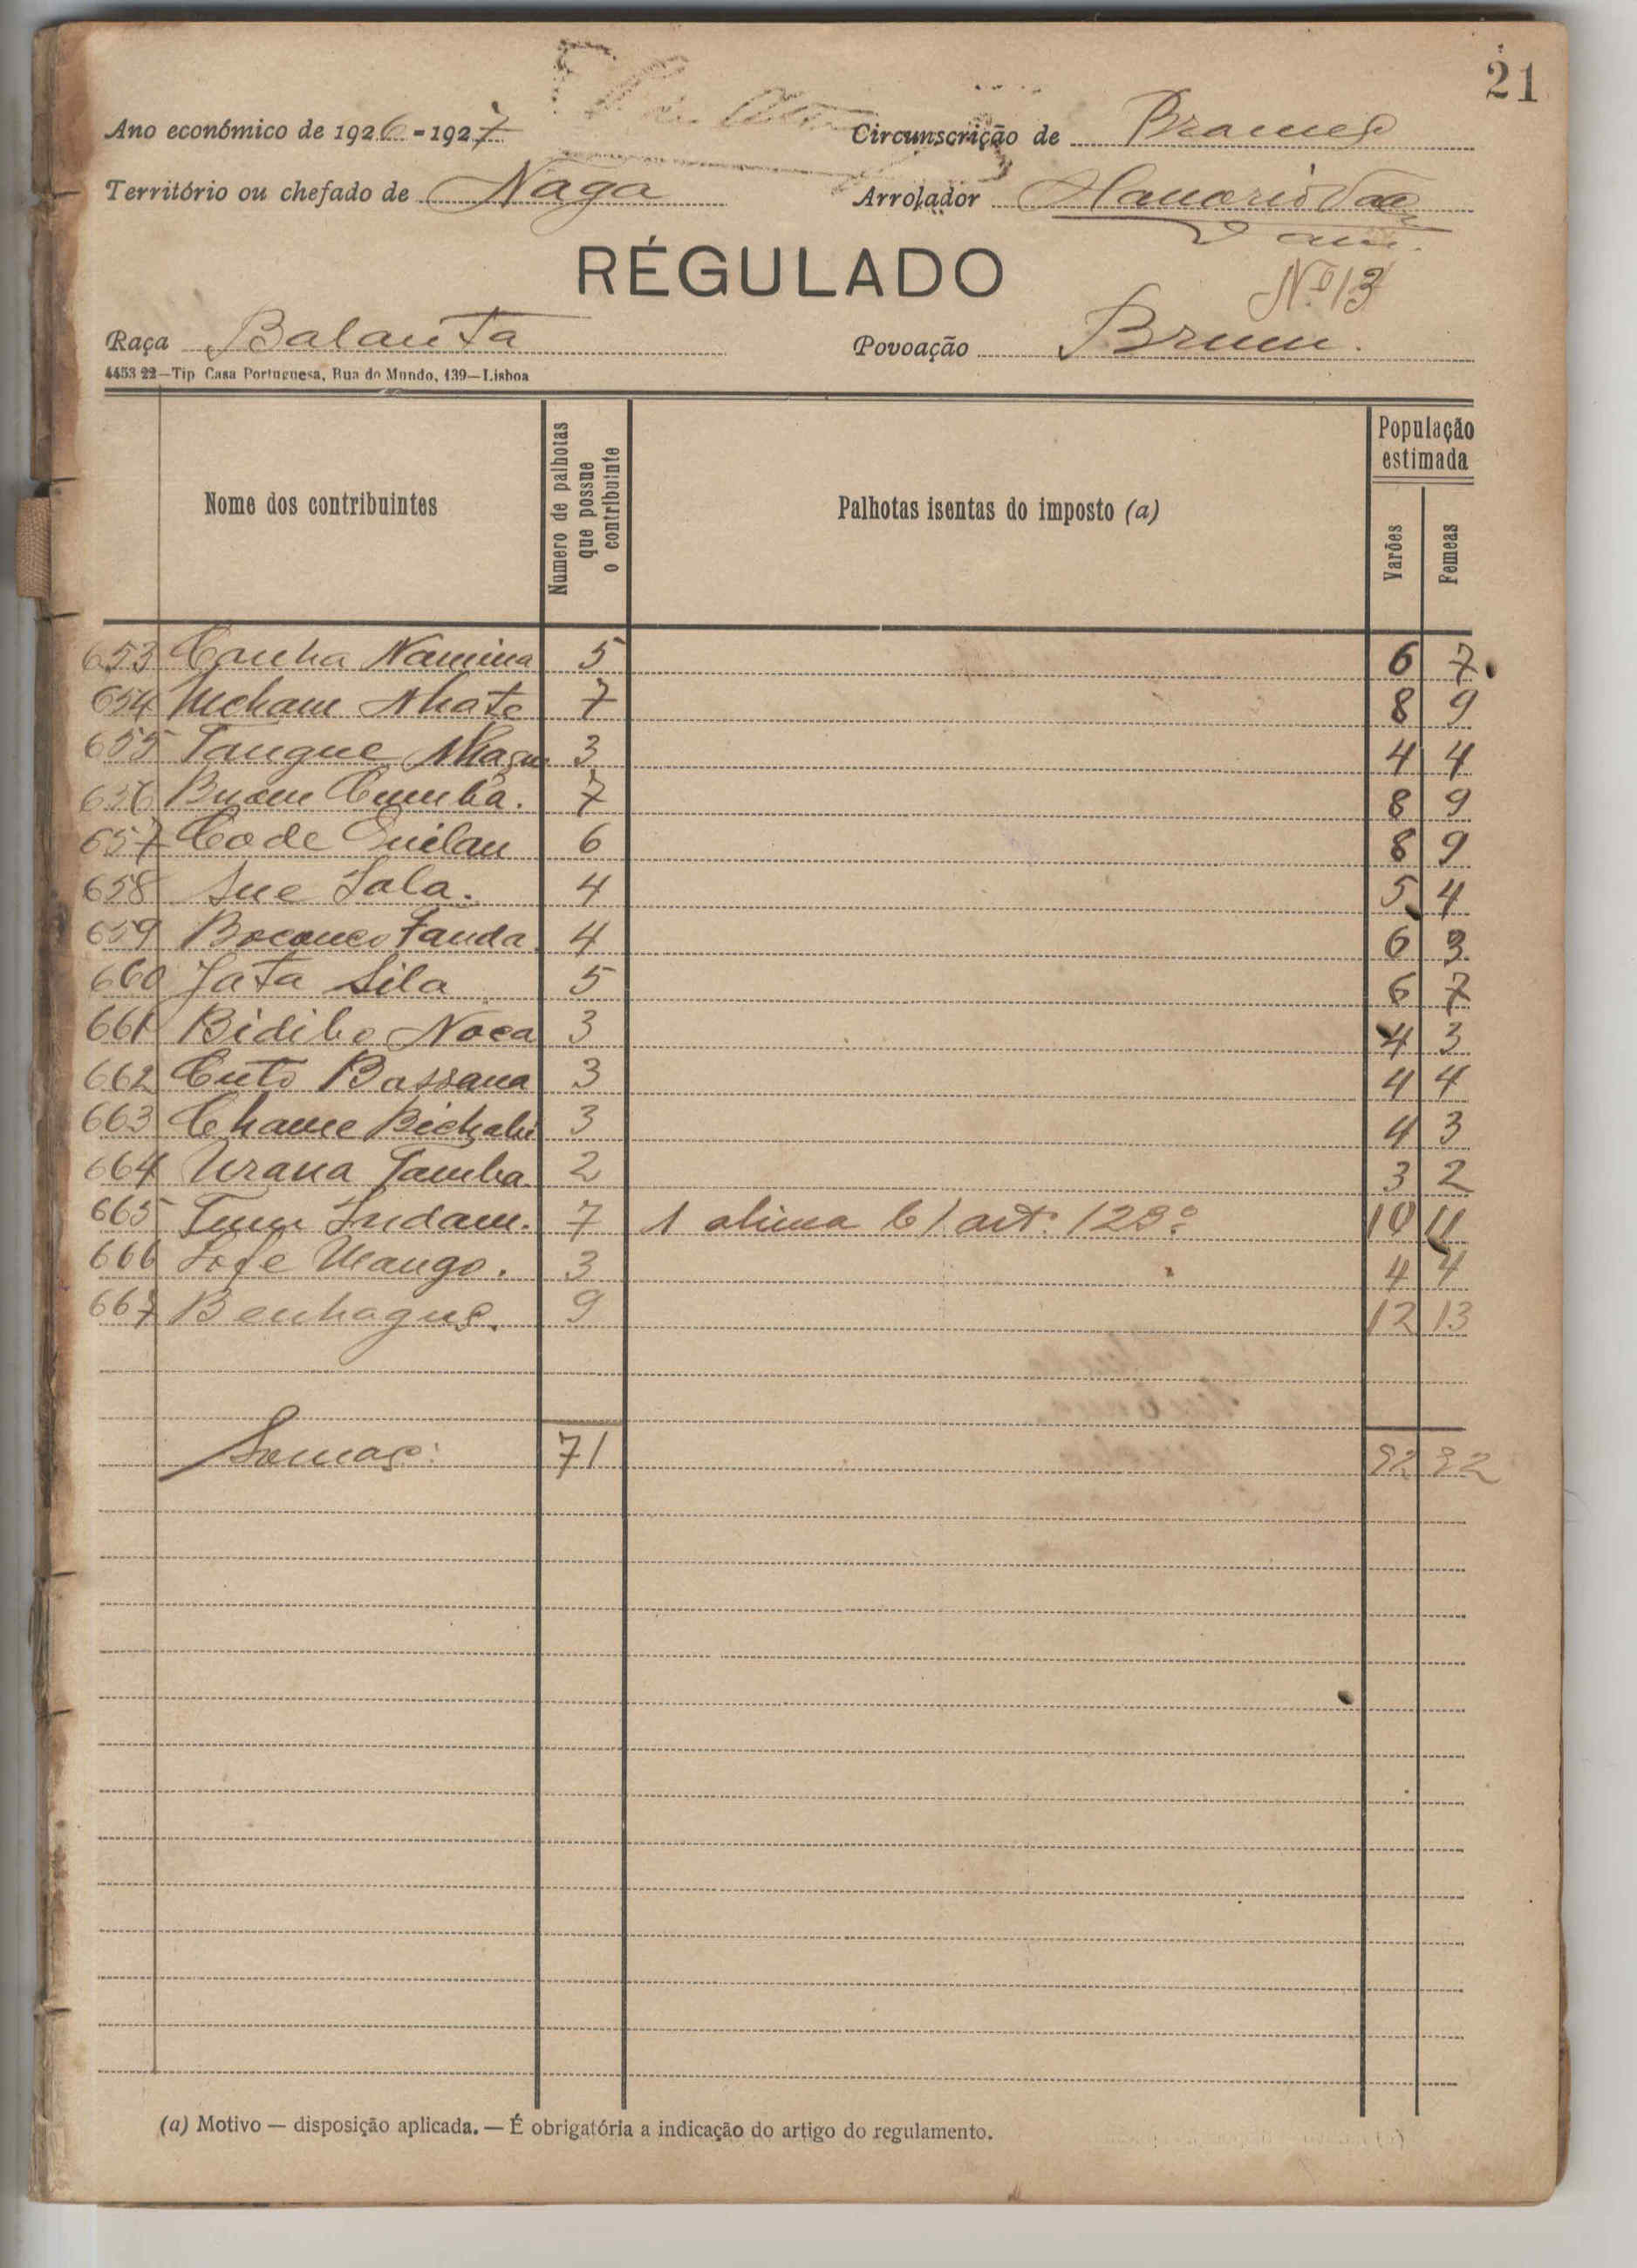 21
Ano económico de 1926-1927 Circunscrição de Brames
Território ou chefado de Naga Arrolador
RÉGULADO
Nº 13
Raça Balanta Povoação Brum.
4453 22—Tip Casa Portuguesa, Rua do Mundo, 139—Lisboa
Nome dos contribuintes Numero de palhotas que possue o contribuinte Palhotas isentas do imposto (a) População estimada Varões Femeas
653 Canha Namina 5 6 7
654 Ncham Nhate 7 8 9
655 Tangue 3 4 4
656 Cumba. 7 8 9
657 Code Quilan 6 8 9
658 Sue Sala. 4 5 4
659 Tanda 4 6 3
660 Jata Sila 5 6 7
661 Bidibe Noca 3 4 3
662 Cuto Bassana 3 4 4
663 Chame 3 4 3
664 Urana Tamba 2 3 2
665 Indam. 7 1 alinea b) art. 123º 10 11
666 Mango. 3 4 4
667 Benhague. 9 12 13
Somas: 71 92 92
(a) Motivo — disposição aplicada. — É obrigatória a indicação do artigo do regulamento.